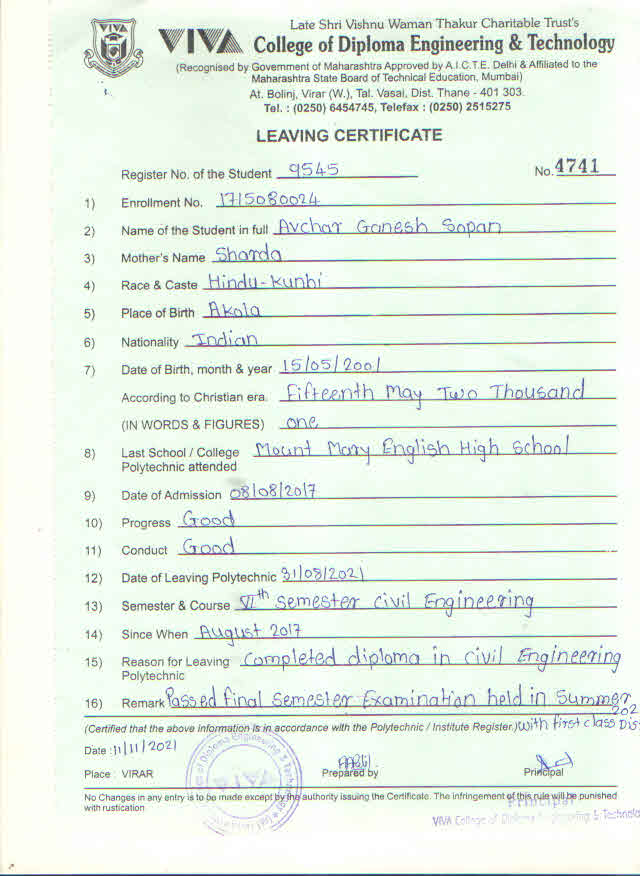 Late Shri Vishnu Waman Thakur Charitable Trust's
VIVA College of Diploma Engineering & Technology
(Recognised by Government of Maharashtra Approved by A.I.C.T.E. Delhi & Affiliated to the
Maharashtra State Board of Technical Education, Mumbai)
At. Bolinj, Virar (W.), Tal. Vasai, Dist. Thane - 401 303.
Tel. : (0250) 6454745, Telefax : (0250) 2515275
LEAVING CERTIFICATE
Register No. of the Student 9545 No. 4741
1) Enrollment No. 1715080024
2) Name of the Student in full Avchar Ganesh Sopan
3) Mother's Name Sharda
4) Race & Caste Hindu-Kunbi
5) Place of Birth Akola
6) Nationality Indian
7) Date of Birth, month & year 15/05/2001
According to Christian era. Fifteenth May Two Thousand
(IN WORDS & FIGURES) one
8) Last School / College Mount Mary English High School
Polytechnic attended
9) Date of Admission 08/08/2017
10) Progress Good
11) Conduct Good
12) Date of Leaving Polytechnic 31/08/2021
13) Semester & Course VIth Semester Civil Engineering
14) Since When August 2017
15) Reason for Leaving Completed diploma in civil Engineering
Polytechnic
16) Remark Passed final Semester Examination held in Summer
202
(Certified that the above information is in accordance with the Polytechnic / Institute Register.) with first class Dis
Date : 11/11/2021
Place : VIRAR Prepared by Principal
No Changes in any entry is to be made except by the authority issuing the Certificate. The infringement of this rule will be punished
with rustication.
Principal
VIVA College of Diploma Engineering & Technolo
VIVA